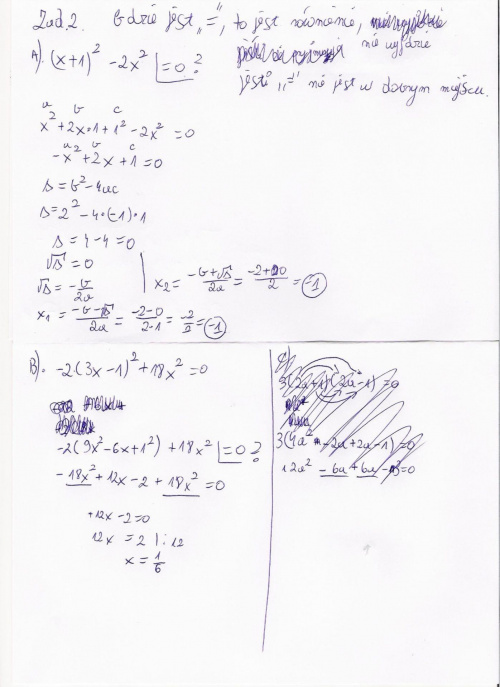 Zad. 2. Gdzie jest „=”, to jest równanie,
nie wyjdzie
jeśli „=” nie jest w dobrym miejscu.
A). (x+1)² - 2x² |=0?
a b c
x² + 2x·1 + 1² - 2x² = 0
a b c
-x² + 2x + 1 = 0
Δ = b² - 4ac
Δ = 2² - 4·(-1)·1
Δ = 4 - 4 = 0
√Δ = 0
√Δ = -b/2a
x₂ = -b+√Δ/2a = -2+0/2 = -1
x₁ = -b-√Δ/2a = -2-0/2·1 = -2/2 = -1
B). -2(3x-1)² + 18x² = 0
-2(9x² - 6x + 1²) + 18x² |=0?
-18x² + 12x - 2 + 18x² = 0
+12x - 2 = 0
12x = 2 |:12
x = 1/6
C)
3(2a+1)(2a-1) = 0
3(4a² - 2a + 2a - 1) = 0
12a² - 6a + 6a